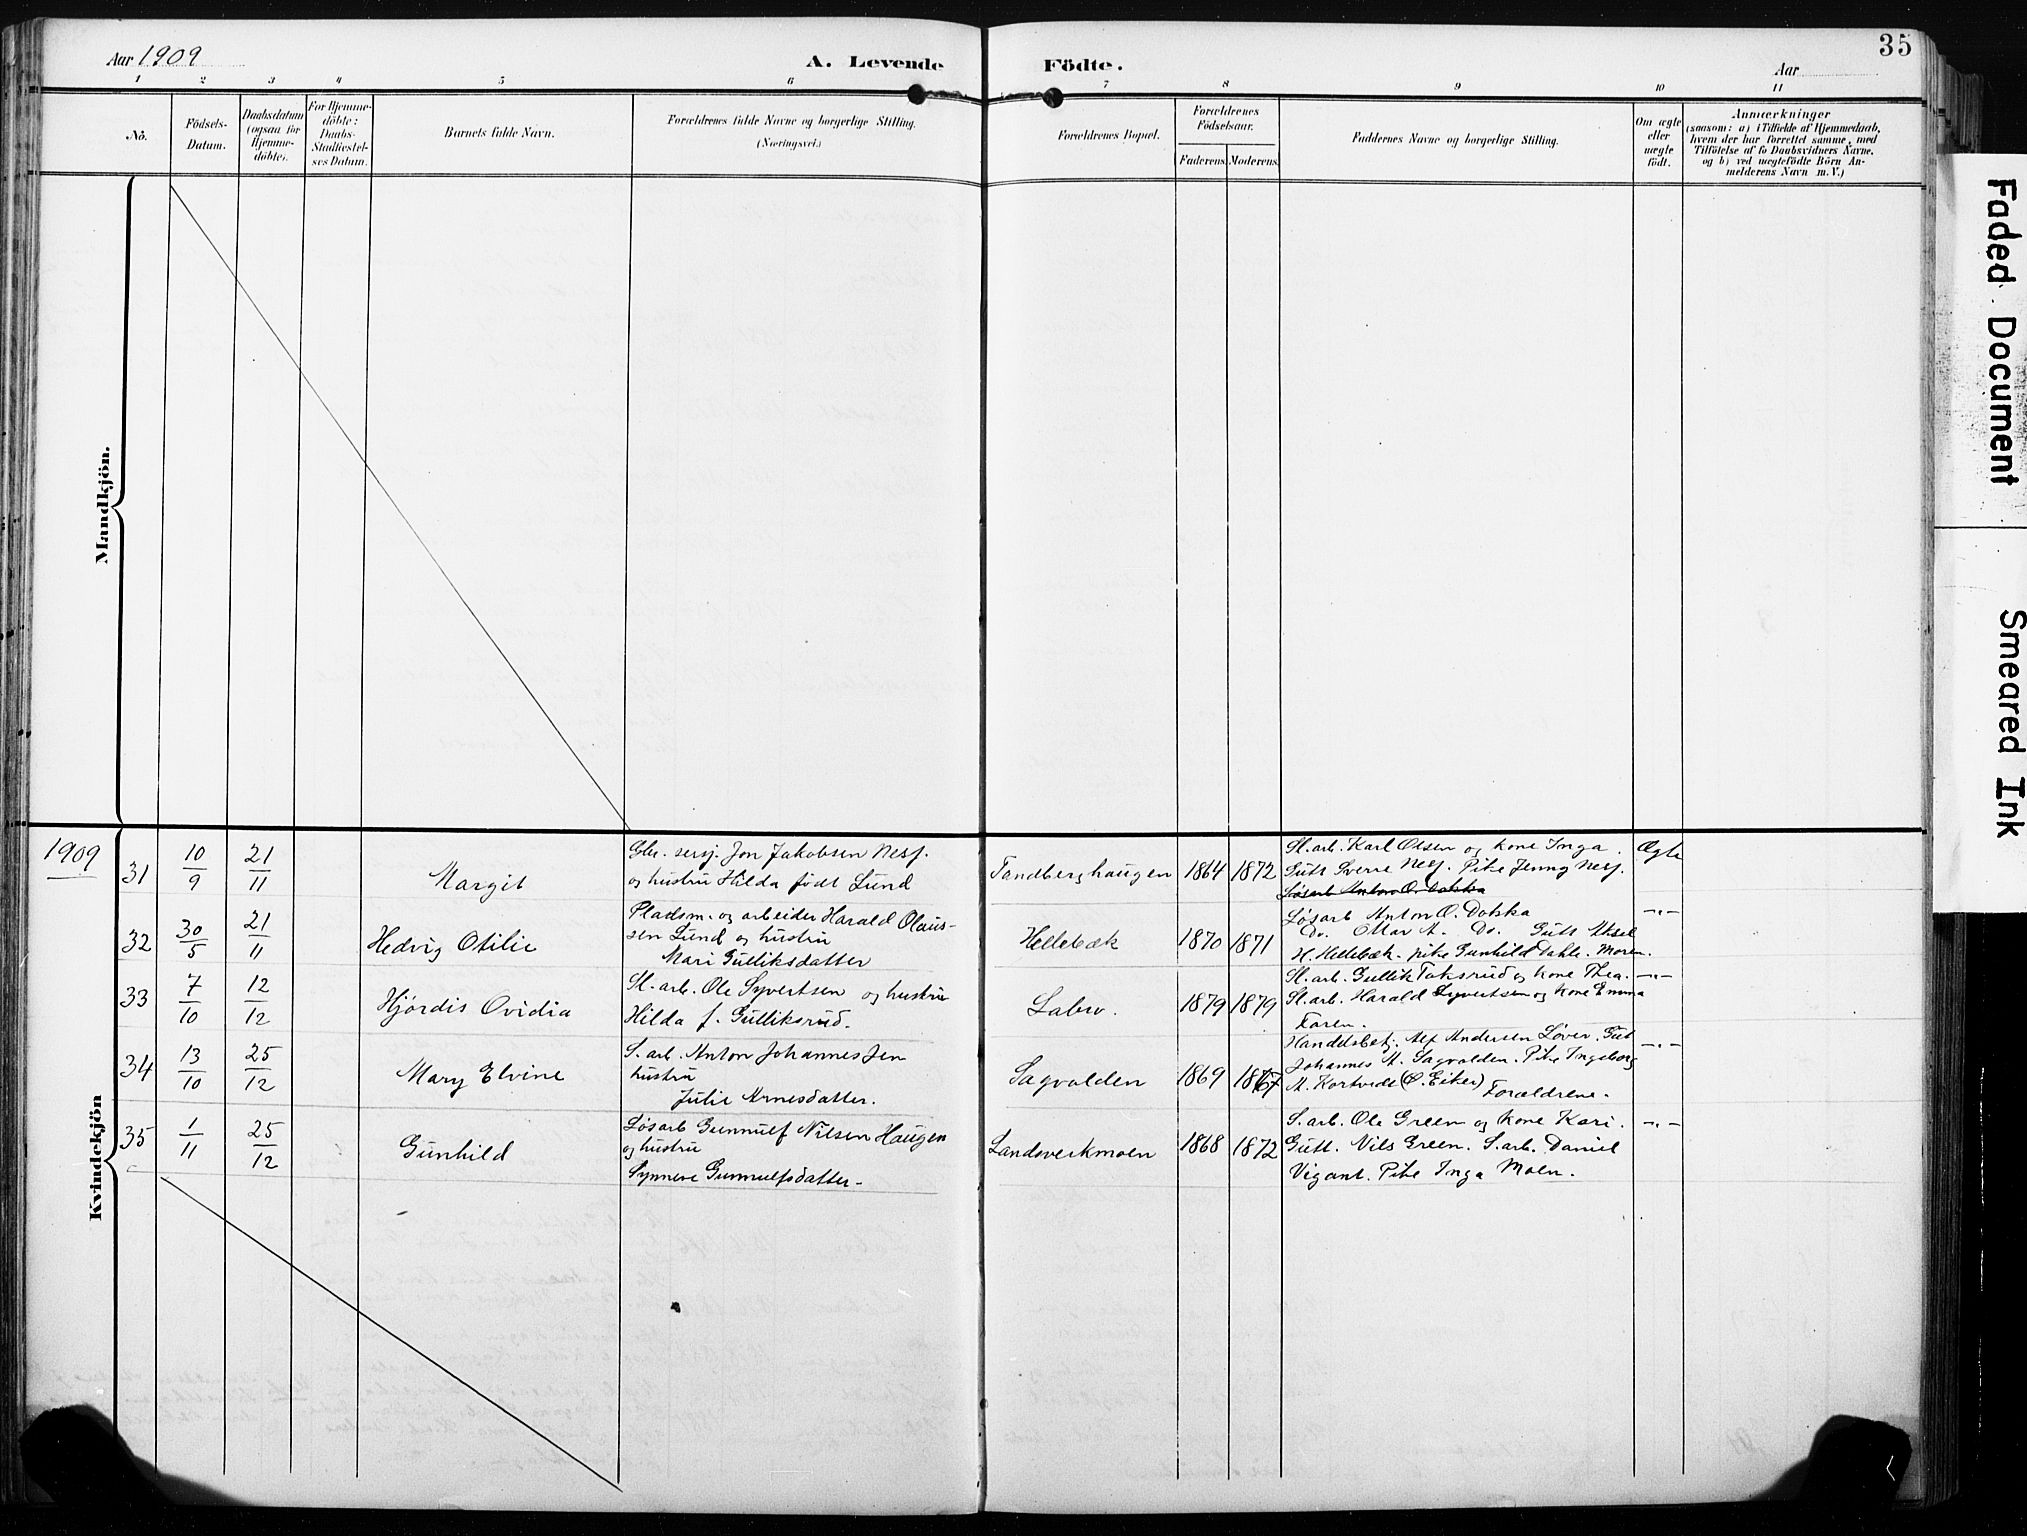 Aar 1909
A. Levende
Födte.
Aar
35
1 2 3 4 5 6 7 8 9 10 11
No.
Födsels-
Datum.
Daabsdatum
(ogsaa for
Hjemme-
döbte).
For Hjemme-
döbte:
Daabs-
Stadfæstel-
ses Datum.
Barnets fulde Navn.
Forældrenes fulde Navne og borgerlige Stilling.
(Næringsvei.)
Forældrenes Bopæl.
Forældrenes
Födselsaar.
Faderens. Moderens.
Faddernes Navne og borgerlige Stilling.
Om ægte
eller
uægte
födt.
Anmærkninger
(saasom: a) i Tilfælde af Hjemmedaab,
hvem der har forrettet samme, med
Tilföielse af to Daabsvidners Navne,
og b) ved uægtefödte Börn An-
melderens Navn m. V.)
Mandkjön.
Kvindekjön
1909
31 10/9 21/11
Margit
Jon Jakobsen Nesf.
og hustru Hilda født Lund
Tandberghaugen 1864 1872
Sl. arb. Karl Olsen og kone Inga.
Gutt Sverre Nesf. Pike Jenny Nesf.
Løsarb Anton O. Dokka
Ægte
32 30/5 21/11
Hedvig Otilie
Pladsm. og arbeider Harald Olaus-
sen Lund og hustru
Mari Gulliksdatter
Hellebæk 1870 1871
Løsarb Anton O. Dokka
Do. Do. Gutt Aksel
H. Hellebæk. pike Gunhild Dahle. Moren.
-"-
33 7/10 12/12
Hjørdis Ovidia
Sl. arb. Ole Syvertsen og hustru
Hilda f. Gulliksrud.
Labro. 1879 1879
Sl. arb. Gullik Toksrud og kone Thea.
Sl. arb. Harald Syvertsen og kone Emma
Faren.
-"-
34 13/10 25/12
Mary Elvine
S. arb. Anton Johannesen
hustru
Julie Arnesdatter.
Sagvolden 1869 1867
Handelsbetj. Alf Andersen Løver. Gut
Johannes A. Sagvolden. Pike Ingeborg
A. Kortvedt (Ø. Eiker) Forældrene.
-"-
35 1/11 25/12
Gunhild
Løsarb Gunnulf Nilsen Haugen
og hustru
Synneve Gunnulfsdatter-
Landsverkmoen 1868 1872
S. arb. Ole Green og kone Kari.
Gutt. Nils Green. S. arb. Daniel
Vigant. Pike Inga Moen.
-"-
Faded Document
Smeared Ink